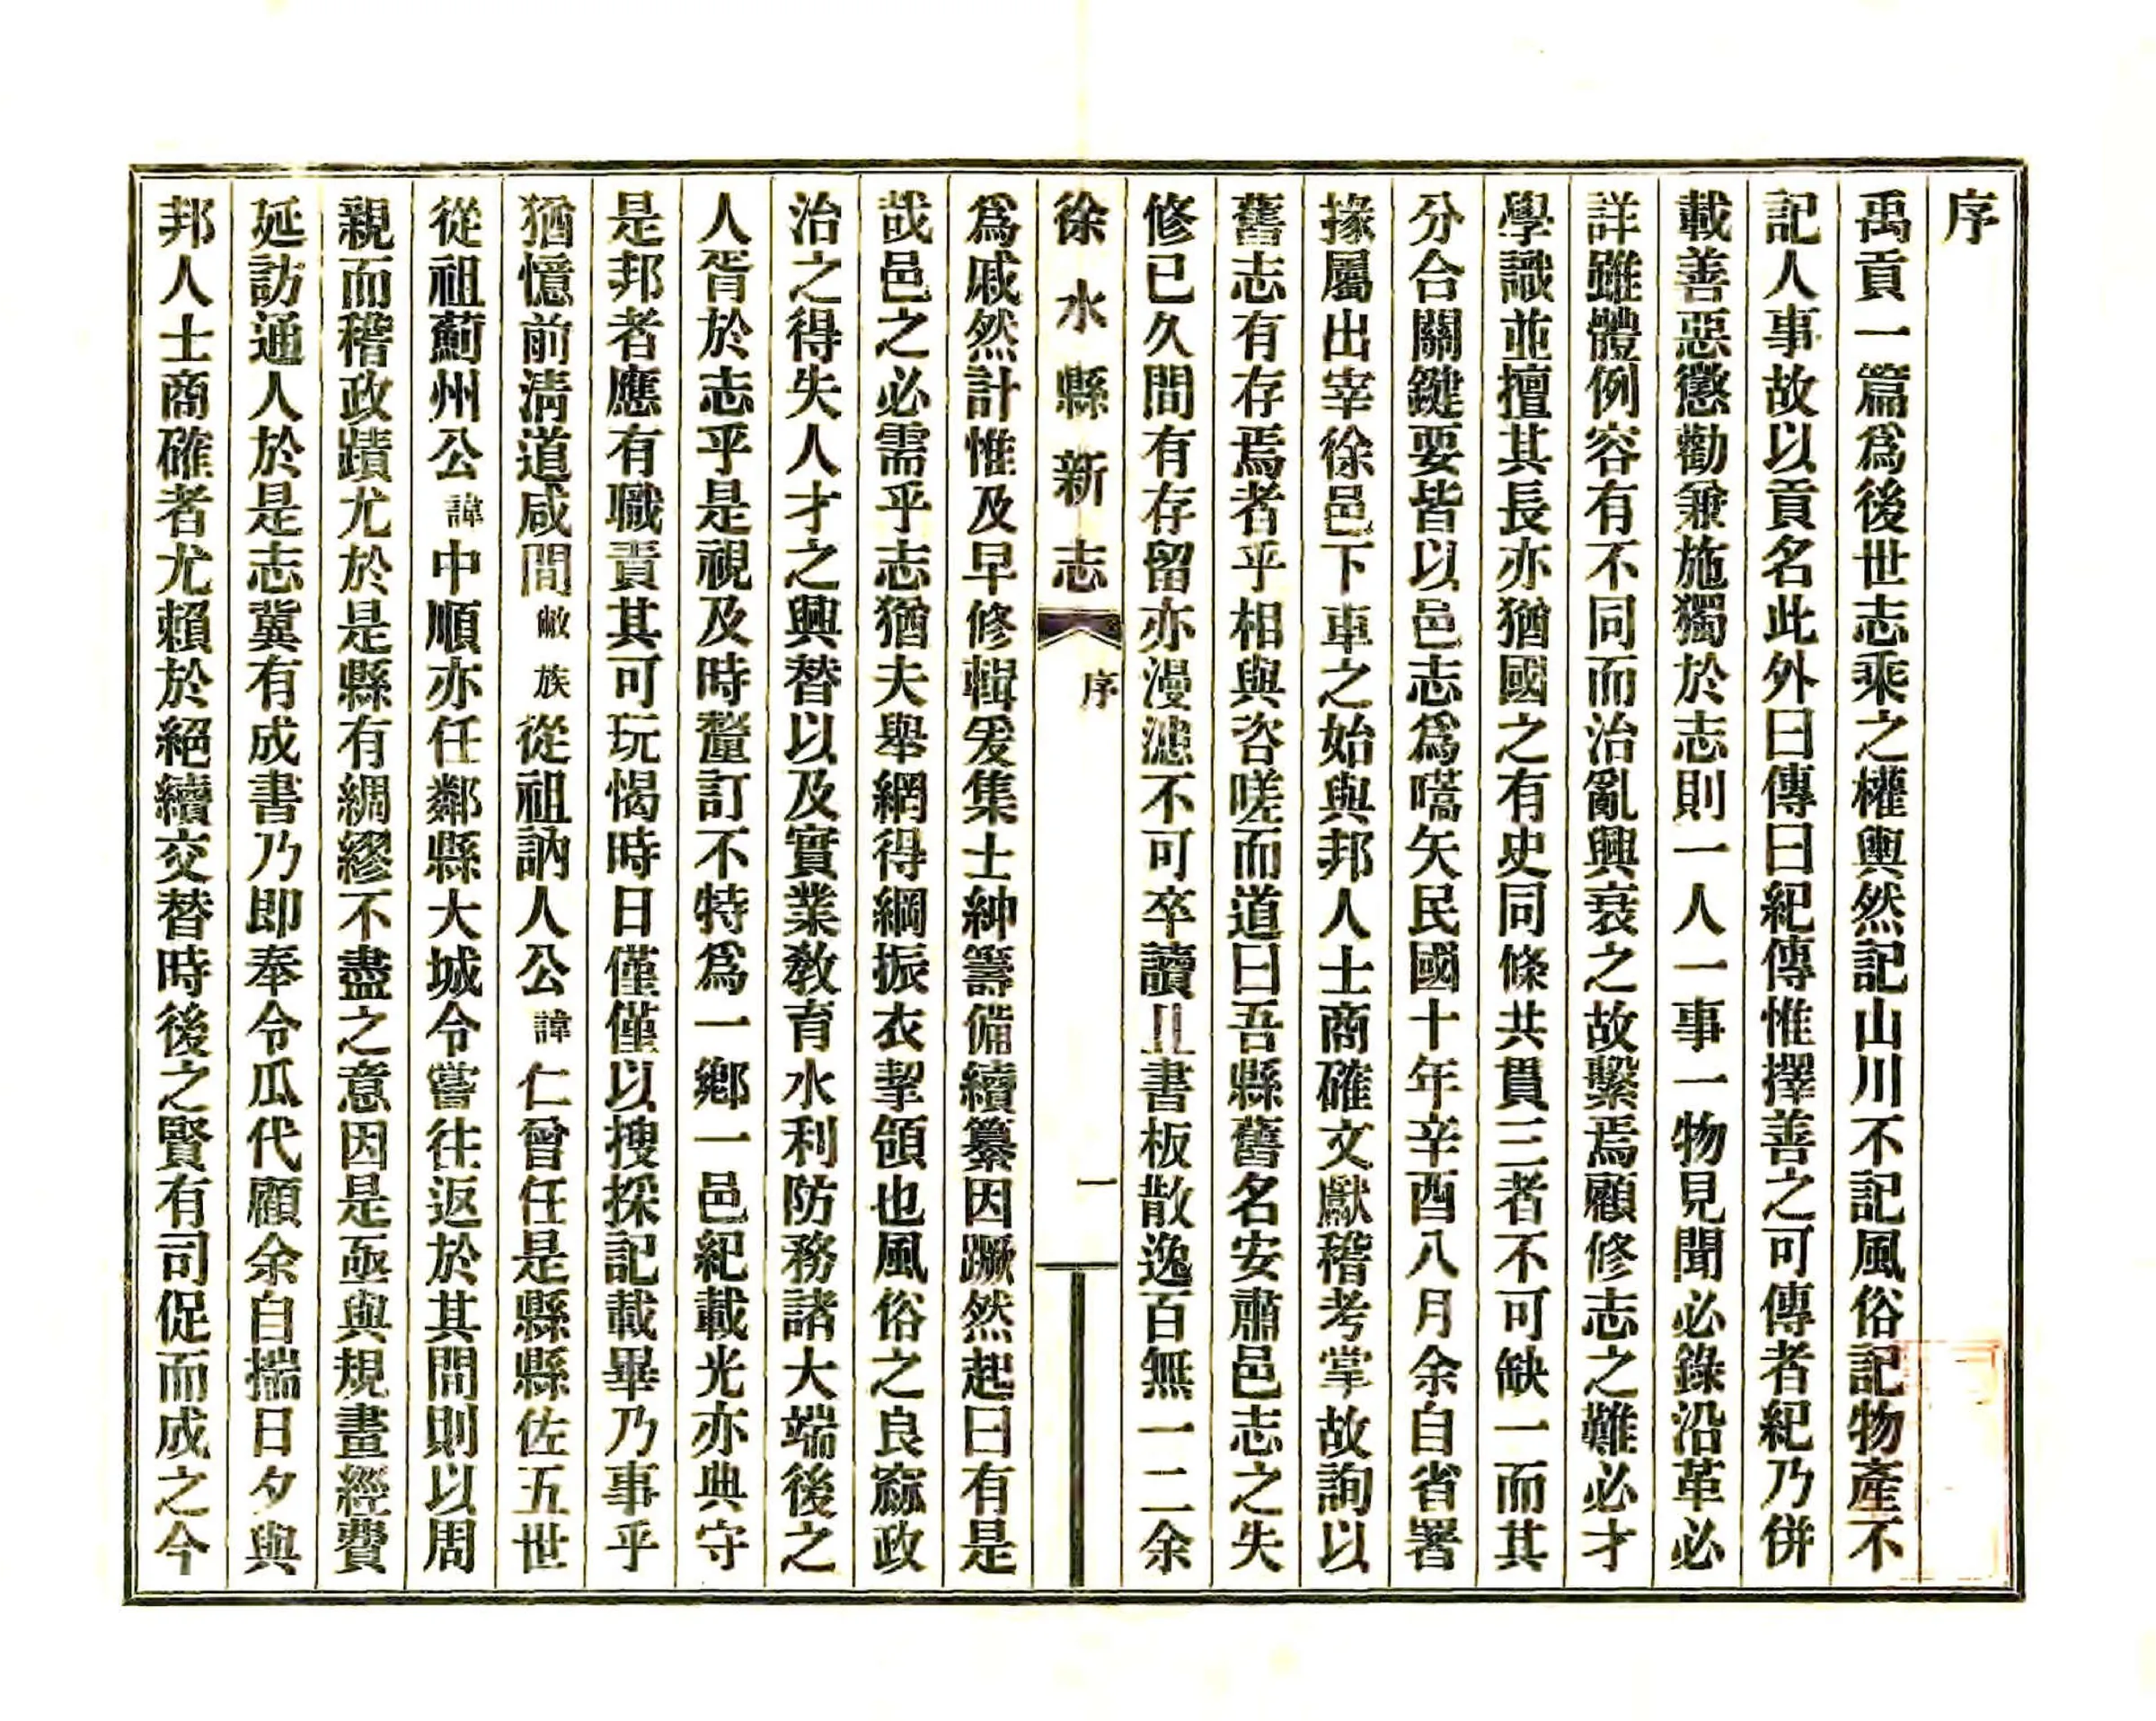 序
禹貢一篇爲後世志乘之權輿然記山川不記風俗記物產不
記人事故以貢名此外曰傳曰紀傳惟擇善之可傳者紀乃併
載善惡懲勸兼施獨於志則一人一事一物見聞必錄沿革必
詳雖體例容有不同而治亂興衰之故繫焉顧修志之難必才
學識並擅其長亦猶國之有史同條共貫三者不可缺一而其
分合關鍵要皆以邑志爲嚆矢民國十年辛酉八月余自省署
掾屬出宰徐邑下車之始與邦人士商確文獻稽考掌故詢以
舊志有存焉者乎相與咨嗟而道曰吾縣舊名安肅邑志之失
修已久間有存留亦漫漶不可卒讀且書板散逸百無一二余
徐水縣新志 序 一
爲戚然計惟及早修輯爰集士紳籌備續纂因蹶然起曰有是
哉邑之必需乎志猶夫舉網得綱振衣挈領也風俗之良窳政
治之得失人才之興替以及實業敎育水利防務諸大端後之
人胥於志乎是視及時釐訂不特爲一鄉一邑紀載光亦典守
是邦者應有職責其可玩愒時日僅僅以搜採記載畢乃事乎
猶憶前淸道咸間敝族從祖訥人公諱仁曾任是縣縣佐五世
從祖薊州公諱中順亦任鄰縣大城令嘗往返於其間則以周
親而稽政蹟尤於是縣有綢繆不盡之意因是亟與規畫經費
延訪通人於是志冀有成書乃即奉令瓜代顧余自揣日夕與
邦人士商確者尤賴於絕續交替時後之賢有司促而成之今